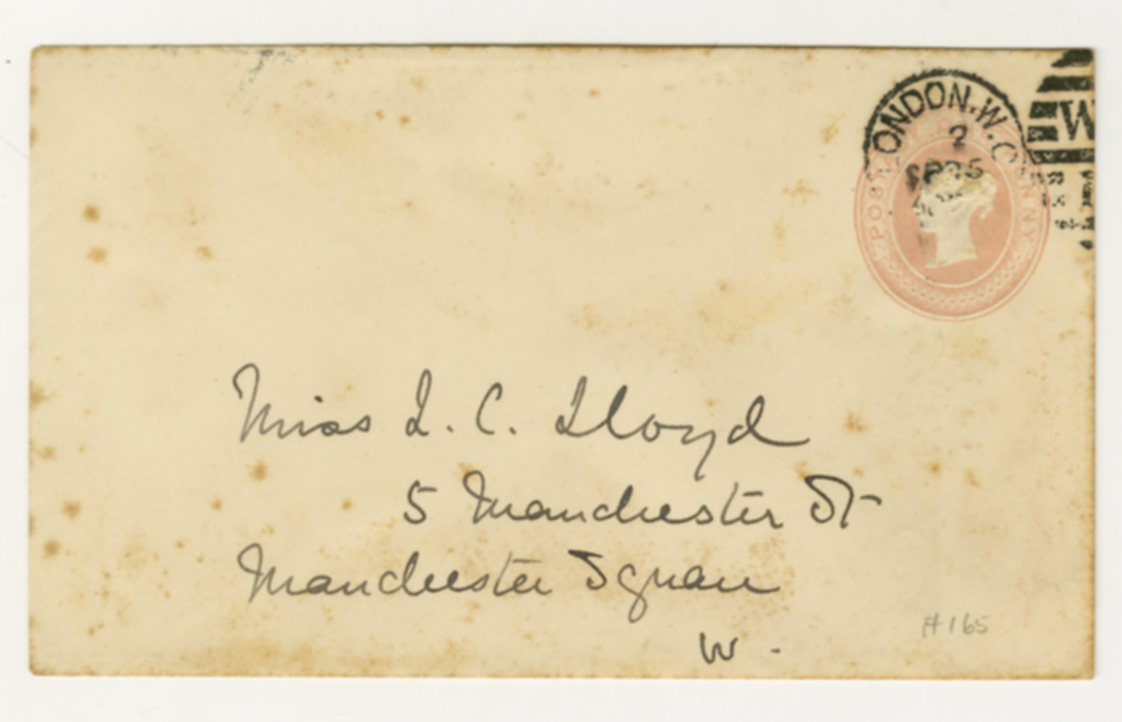 LONDON.W.C
2
SP 25
W
POSTAGE PENNY
Miss L. C. Lloyd
5 Manchester St
Manchester Square
W.
#165